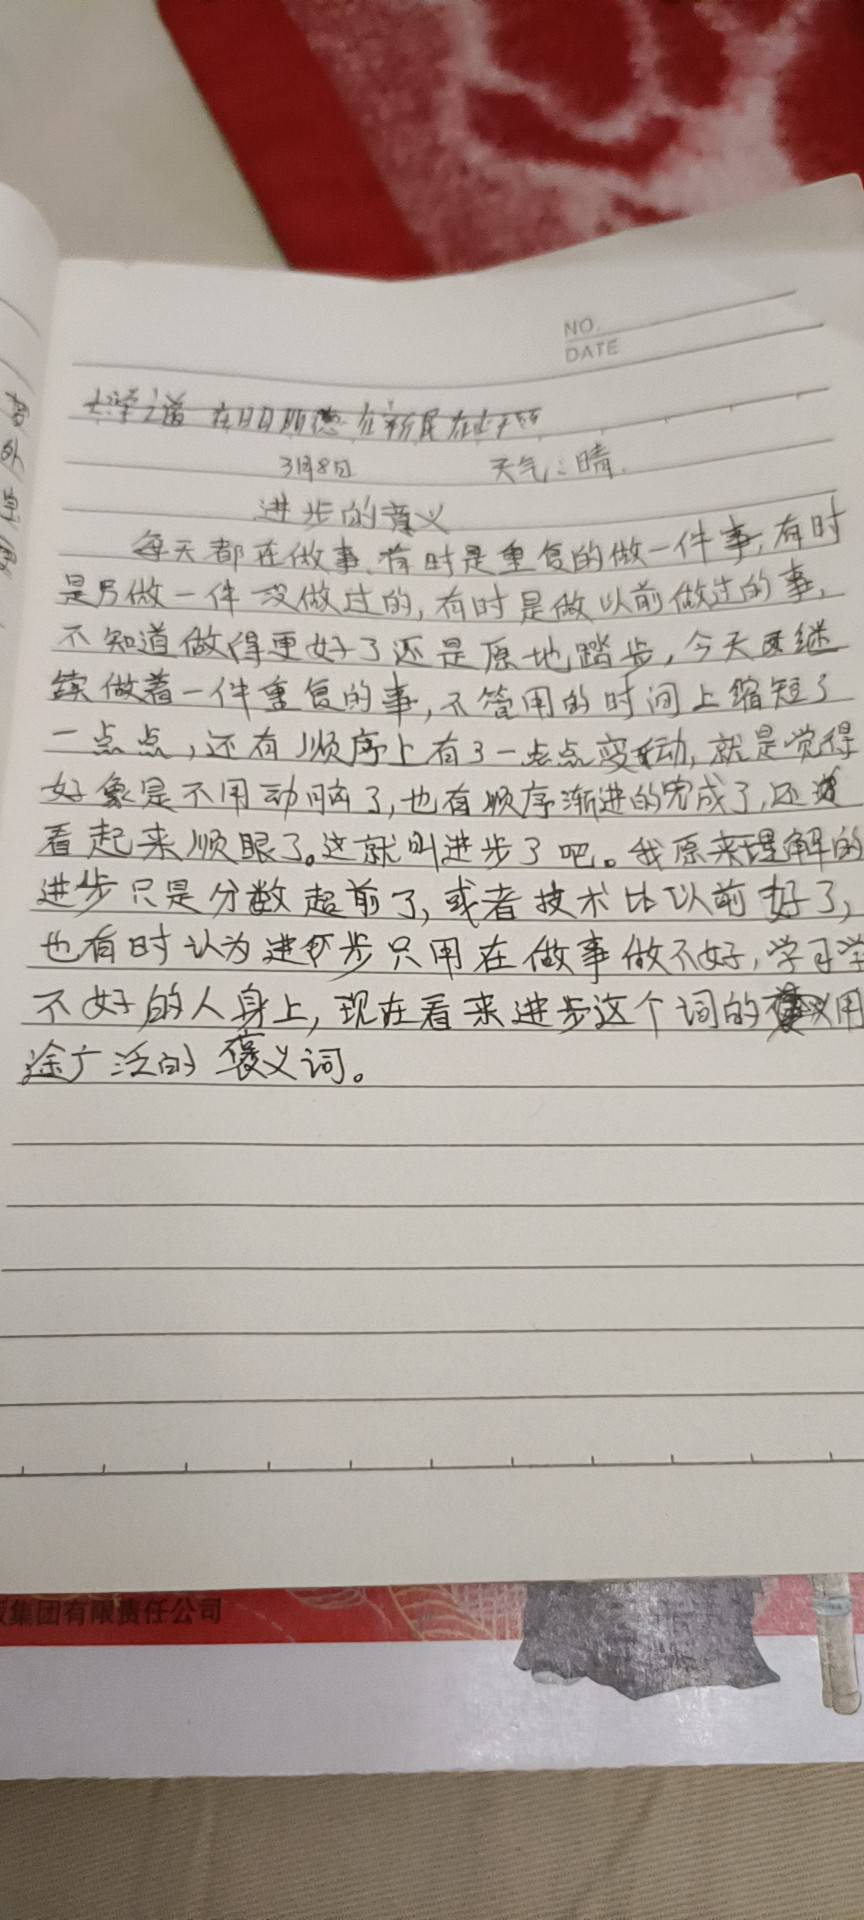 NO.
DATE
大学之道 在明明德 在新民 在止于
3月8日 天气:晴.
进步的意义
每天都在做事,有时是重复的做一件事,有时
是另做一件没做过的,有时是做以前做过的事,
不知道做得更好了还是原地踏步,今天又继
续做着一件重复的事,不管用的时间上缩短了
一点点,还有顺序上有了一点点变动,就是觉得
好象是不用动脑了,也有顺序渐进的完成了,还
看起来顺眼了。这就叫进步了吧。我原来理解的
进步只是分数超前了,或者技术比以前好了,
也有时认为进步只用在做事做不好,学习学
不好的人身上,现在看来进步这个词的 用
途广泛的褒义词。
集团有限责任公司
外